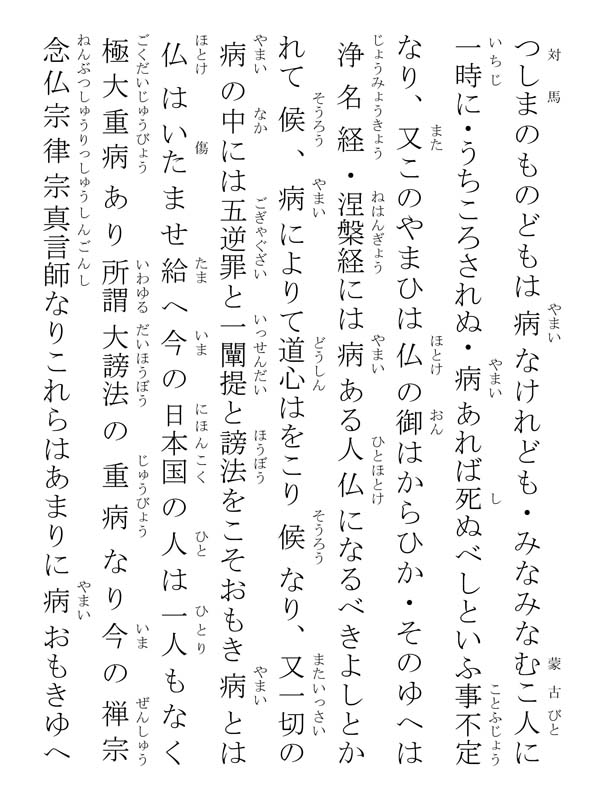 つしまのものどもは病なけれども・みなみなむこ人に
一時に・うちころされぬ・病あれば死ぬべしといふ事不定
なり、又このやまひは仏の御はからひか・そのゆへは
浄名経・涅槃経には病ある人仏になるべきよしとか
れて候、病によりて道心はをこり候なり、又一切の
病の中には五逆罪と一闡提と謗法をこそおもき病とは
仏はいたませ給へ今の日本国の人は一人もなく
極大重病あり所謂大謗法の重病なり今の禅宗
念仏宗律宗真言師なりこれらはあまりに病おもきゆへ